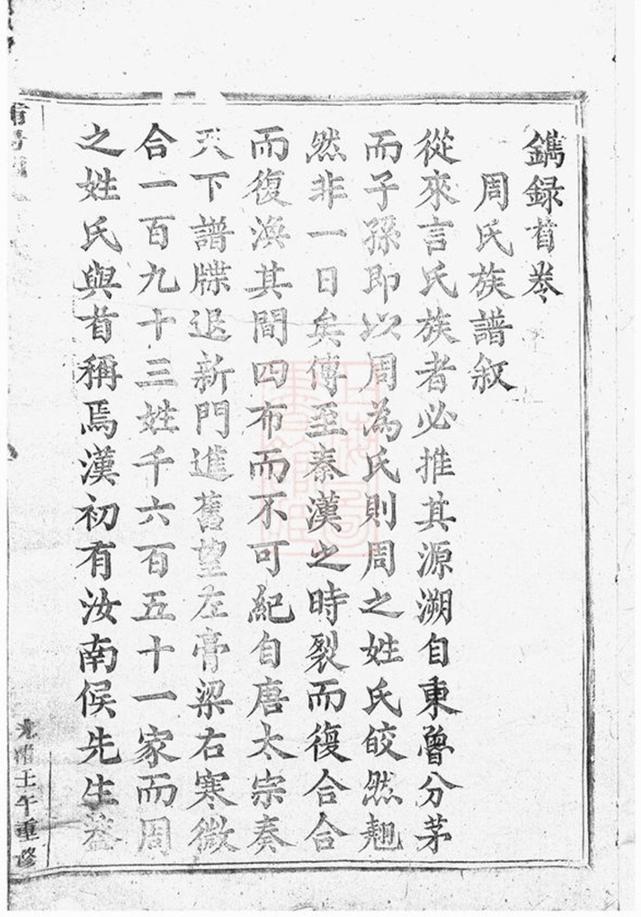 鐫録首卷
周氏族譜叙
從來言氏族者必推其源溯自東魯分茅
而子孫即以周為氏則周之姓氏皎然翹
然非一日矣傳至秦漢之時裂而復合合
而復渙其間四布而不可紀自唐太宗奏
天下譜牒退新門進舊望左膏梁右寒微
合一百九十三姓千六百五十一家而周
之姓氏與首稱焉漢初有汝南侯先生蓋
光緒壬午重修